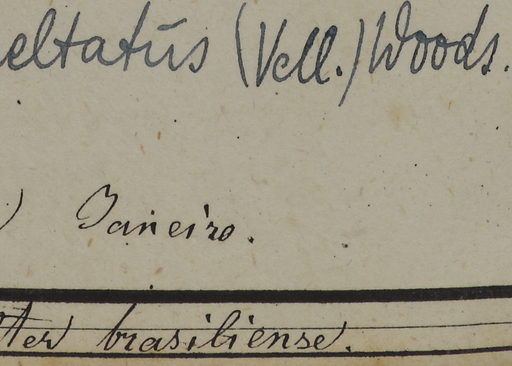 eltatus (Vell.) Woods.
Janeiro.
ter brasiliense.